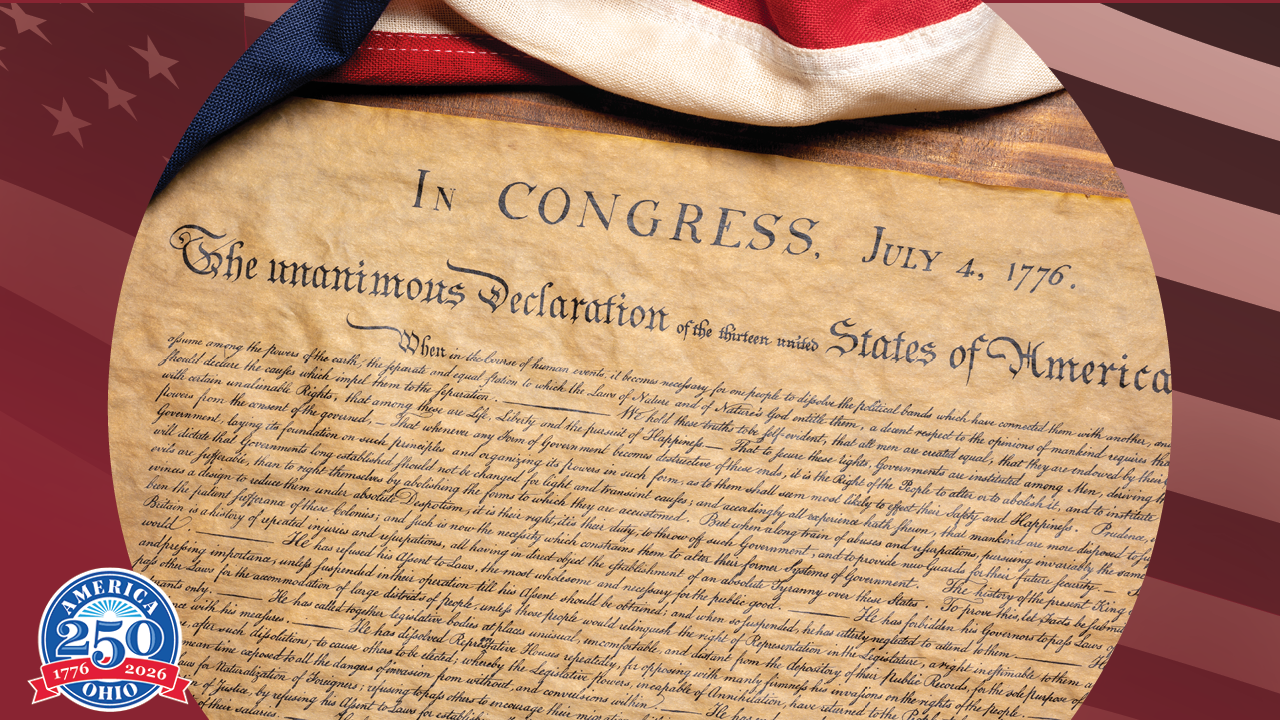 In CONGRESS, July 4, 1776.
The unanimous Declaration of the thirteen united States of America
When in the Course of human events, it becomes necessary for one people to dissolve the political bands which have connected them with another, and
assume among the powers of the earth, the separate and equal station to which the Laws of Nature and of Nature's God entitle them, a decent respect to the opinions of mankind requires tha
should declare the causes which impel them to the separation. We hold these truths to be self-evident, that all men are created equal, that they are endowed by their
with certain unalienable Rights, that among these are Life, Liberty and the pursuit of Happiness.— That to secure these rights, Governments are instituted among Men, deriving th
powers from the consent of the governed, — That whenever any Form of Government becomes destructive of these ends, it is the Right of the People to alter or to abolish it, and to institute
Government, laying its foundation on such principles and organizing its powers in such form, as to them shall seem most likely to effect their Safety and Happiness. Prudence,
will dictate that Governments long established should not be changed for light and transient causes; and accordingly all experience hath shewn, that mankind are more disposed to
evils are sufferable, than to right themselves by abolishing the forms to which they are accustomed. But when a long train of abuses and usurpations, pursuing invariably the same
evinces a design to reduce them under absolute Despotism, it is their right, it is their duty, to throw off such Government, and to provide new Guards for their future security.—
been the patient sufferance of these Colonies; and such is now the necessity which constrains them to alter their former Systems of Government. The history of the present King
Britain is a history of repeated injuries and usurpations, all having in direct object the establishment of an absolute Tyranny over these States. To prove this, let Facts be submi
world. He has refused his Assent to Laws, the most wholesome and necessary for the public good. He has forbidden his Governors to pass Laws
and pressing importance, unless suspended in their operation till his Assent should be obtained; and when so suspended, he has utterly neglected to attend to them. He
pass other Laws for the accommodation of large districts of people, unless those people would relinquish the right of Representation in the Legislature, a right inestimable to them
rants only. He has called together legislative bodies at places unusual, uncomfortable, and distant from the depository of their public Records, for the sole purpose of
nce with his measures. He has dissolved Representative Houses repeatedly, for opposing with manly firmness his invasions on the rights of the people.
e, after such dissolutions, to cause others to be elected; whereby the Legislative powers, incapable of Annihilation, have returned to the People
mean time exposed to all the dangers of invasion from without, and convulsions within. He has
aws for Naturalization of Foreigners; refusing to pass others to encourage their migration
of Justice, by refusing his Assent to Laws for establis
of their salaries.
AMERICA
250
1776 2026
OHIO